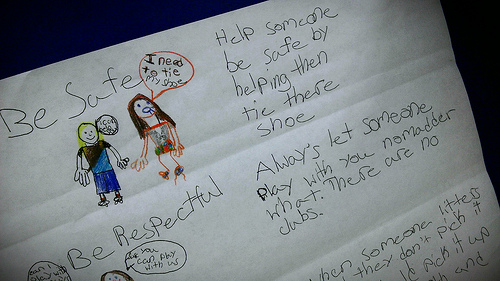 Be Safe
I need
to tie
my shoe
Help someone
be safe by
helping then
tie there
shoe
Be Respectful
you
can play
with us
can I
play with
Always let someone
play with you nomadder
what. There are no
clubs.
when someone litters
they don't pick it
pick it up
and